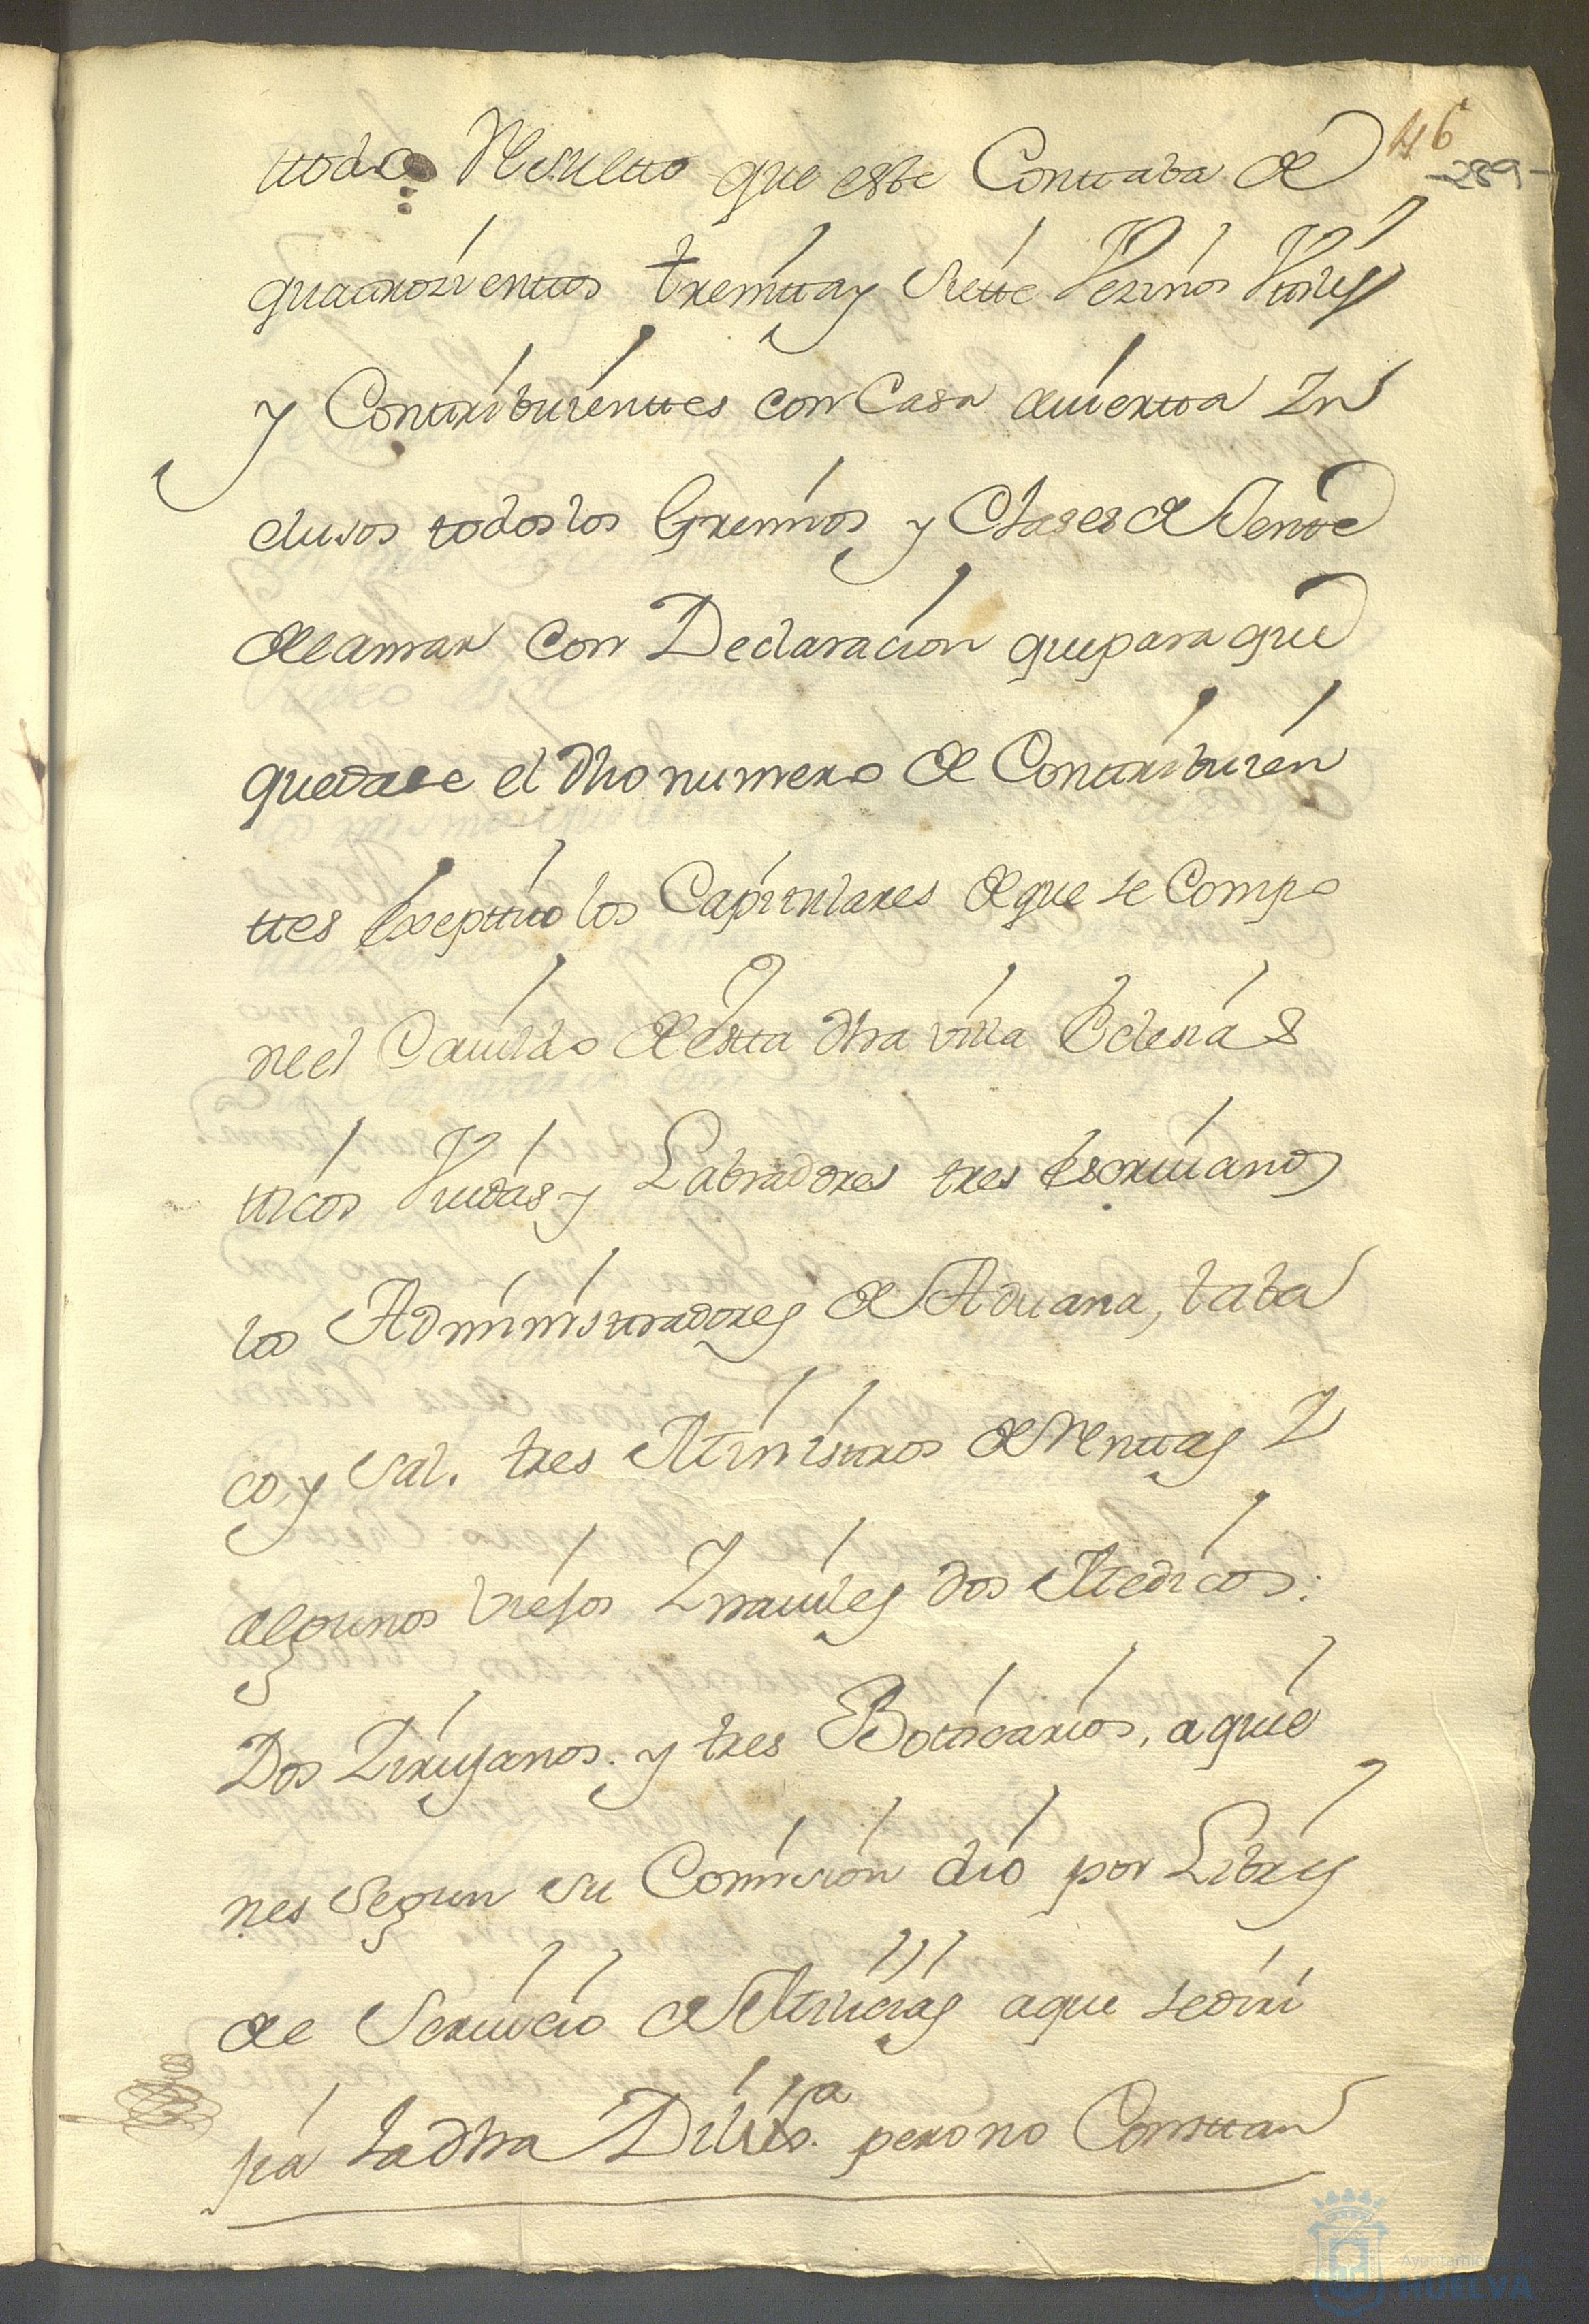 46
-289-
ttodo Resultto que este Conttaba de
quattrozienttos treintta y siette Vezinos Vtiles
y Conttribuienttes con Casa auiertta In
clusos todos los Gremios y Clases de Jentte
de la mar con Declaracion que para que
quedase el dho numero de Conttribuien
ttes exepttuo los Capitulares de que se Compo
ne el Cauildo de estta dha villa Eclesias
ticos Viudas y Labradores tres escriuanos
los Administtradores de Aduana, taba
co, y Sal. tres Ministtros de Renttas Y
algunos viejos Ynauiles dos Medicos:
Dos Zirujanos. y tres Boticarios, a quie
nes segun su Comision dio por Libres
de Seruicio de Milicias a que se diri
jia la dha Dilix.a pero no Consttan
Ayuntamiento de
HUELVA